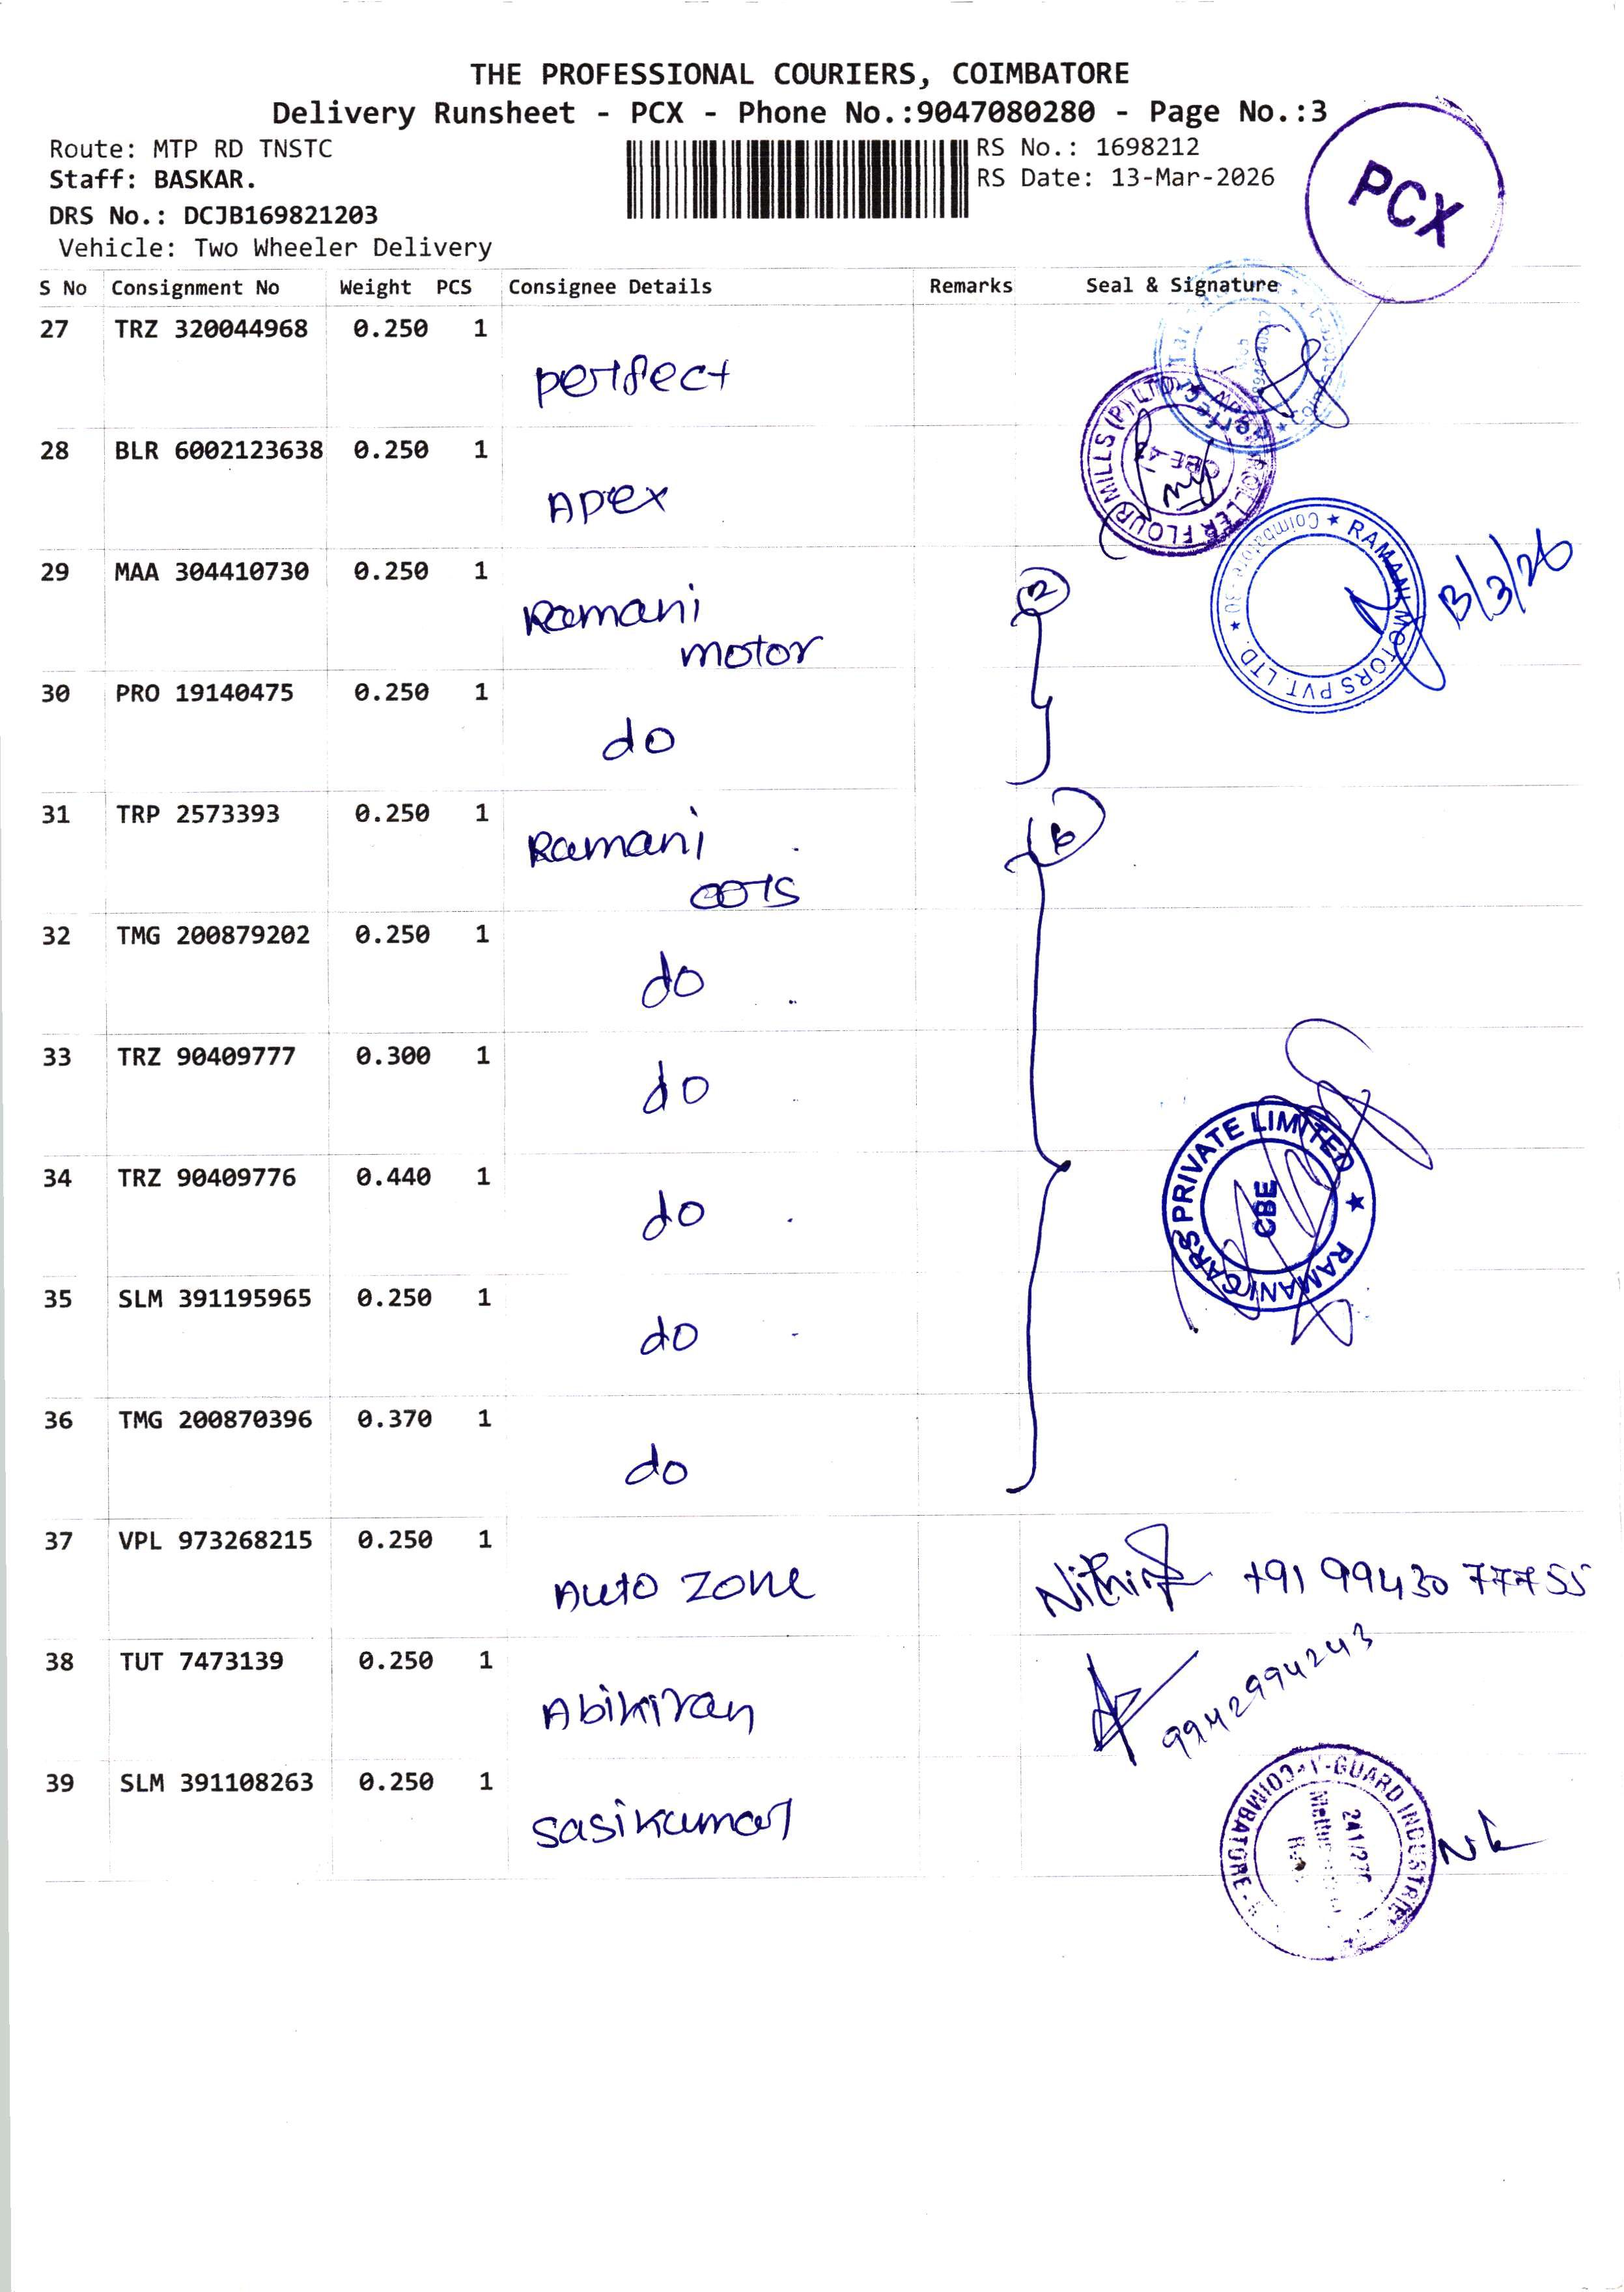 THE PROFESSIONAL COURIERS, COIMBATORE
Delivery Runsheet - PCX - Phone No.:9047080280 - Page No.:3
Route: MTP RD TNSTC
RS No.: 1698212
Staff: BASKAR.
RS Date: 13-Mar-2026
DRS No.: DCJB169821203
Vehicle: Two Wheeler Delivery
PCX
S No Consignment No Weight PCS Consignee Details Remarks Seal & Signature
27 TRZ 320044968 0.250 1
perfect
Perfect
28 BLR 6002123638 0.250 1
Apex
ROLLER FLOUR MILLS (P) LTD
CBE-47
29 MAA 304410730 0.250 1
Ramani
motor
2
★ RAMANI MOTORS PVT. LTD. ★ Coimbatore - 30
13/3/26
30 PRO 19140475 0.250 1
do
31 TRP 2573393 0.250 1
Ramani
cars
6
32 TMG 200879202 0.250 1
do
33 TRZ 90409777 0.300 1
do
34 TRZ 90409776 0.440 1
do
★ RAMANI CARS PRIVATE LIMITED
CBE
35 SLM 391195965 0.250 1
do
36 TMG 200870396 0.370 1
do
37 VPL 973268215 0.250 1
Auto zone
+91 99430 77755
38 TUT 7473139 0.250 1
Abikiran
9942994243
39 SLM 391108263 0.250 1
Sasikumar
V-GUARD INDUSTRIE
COIMBATORE
241/27